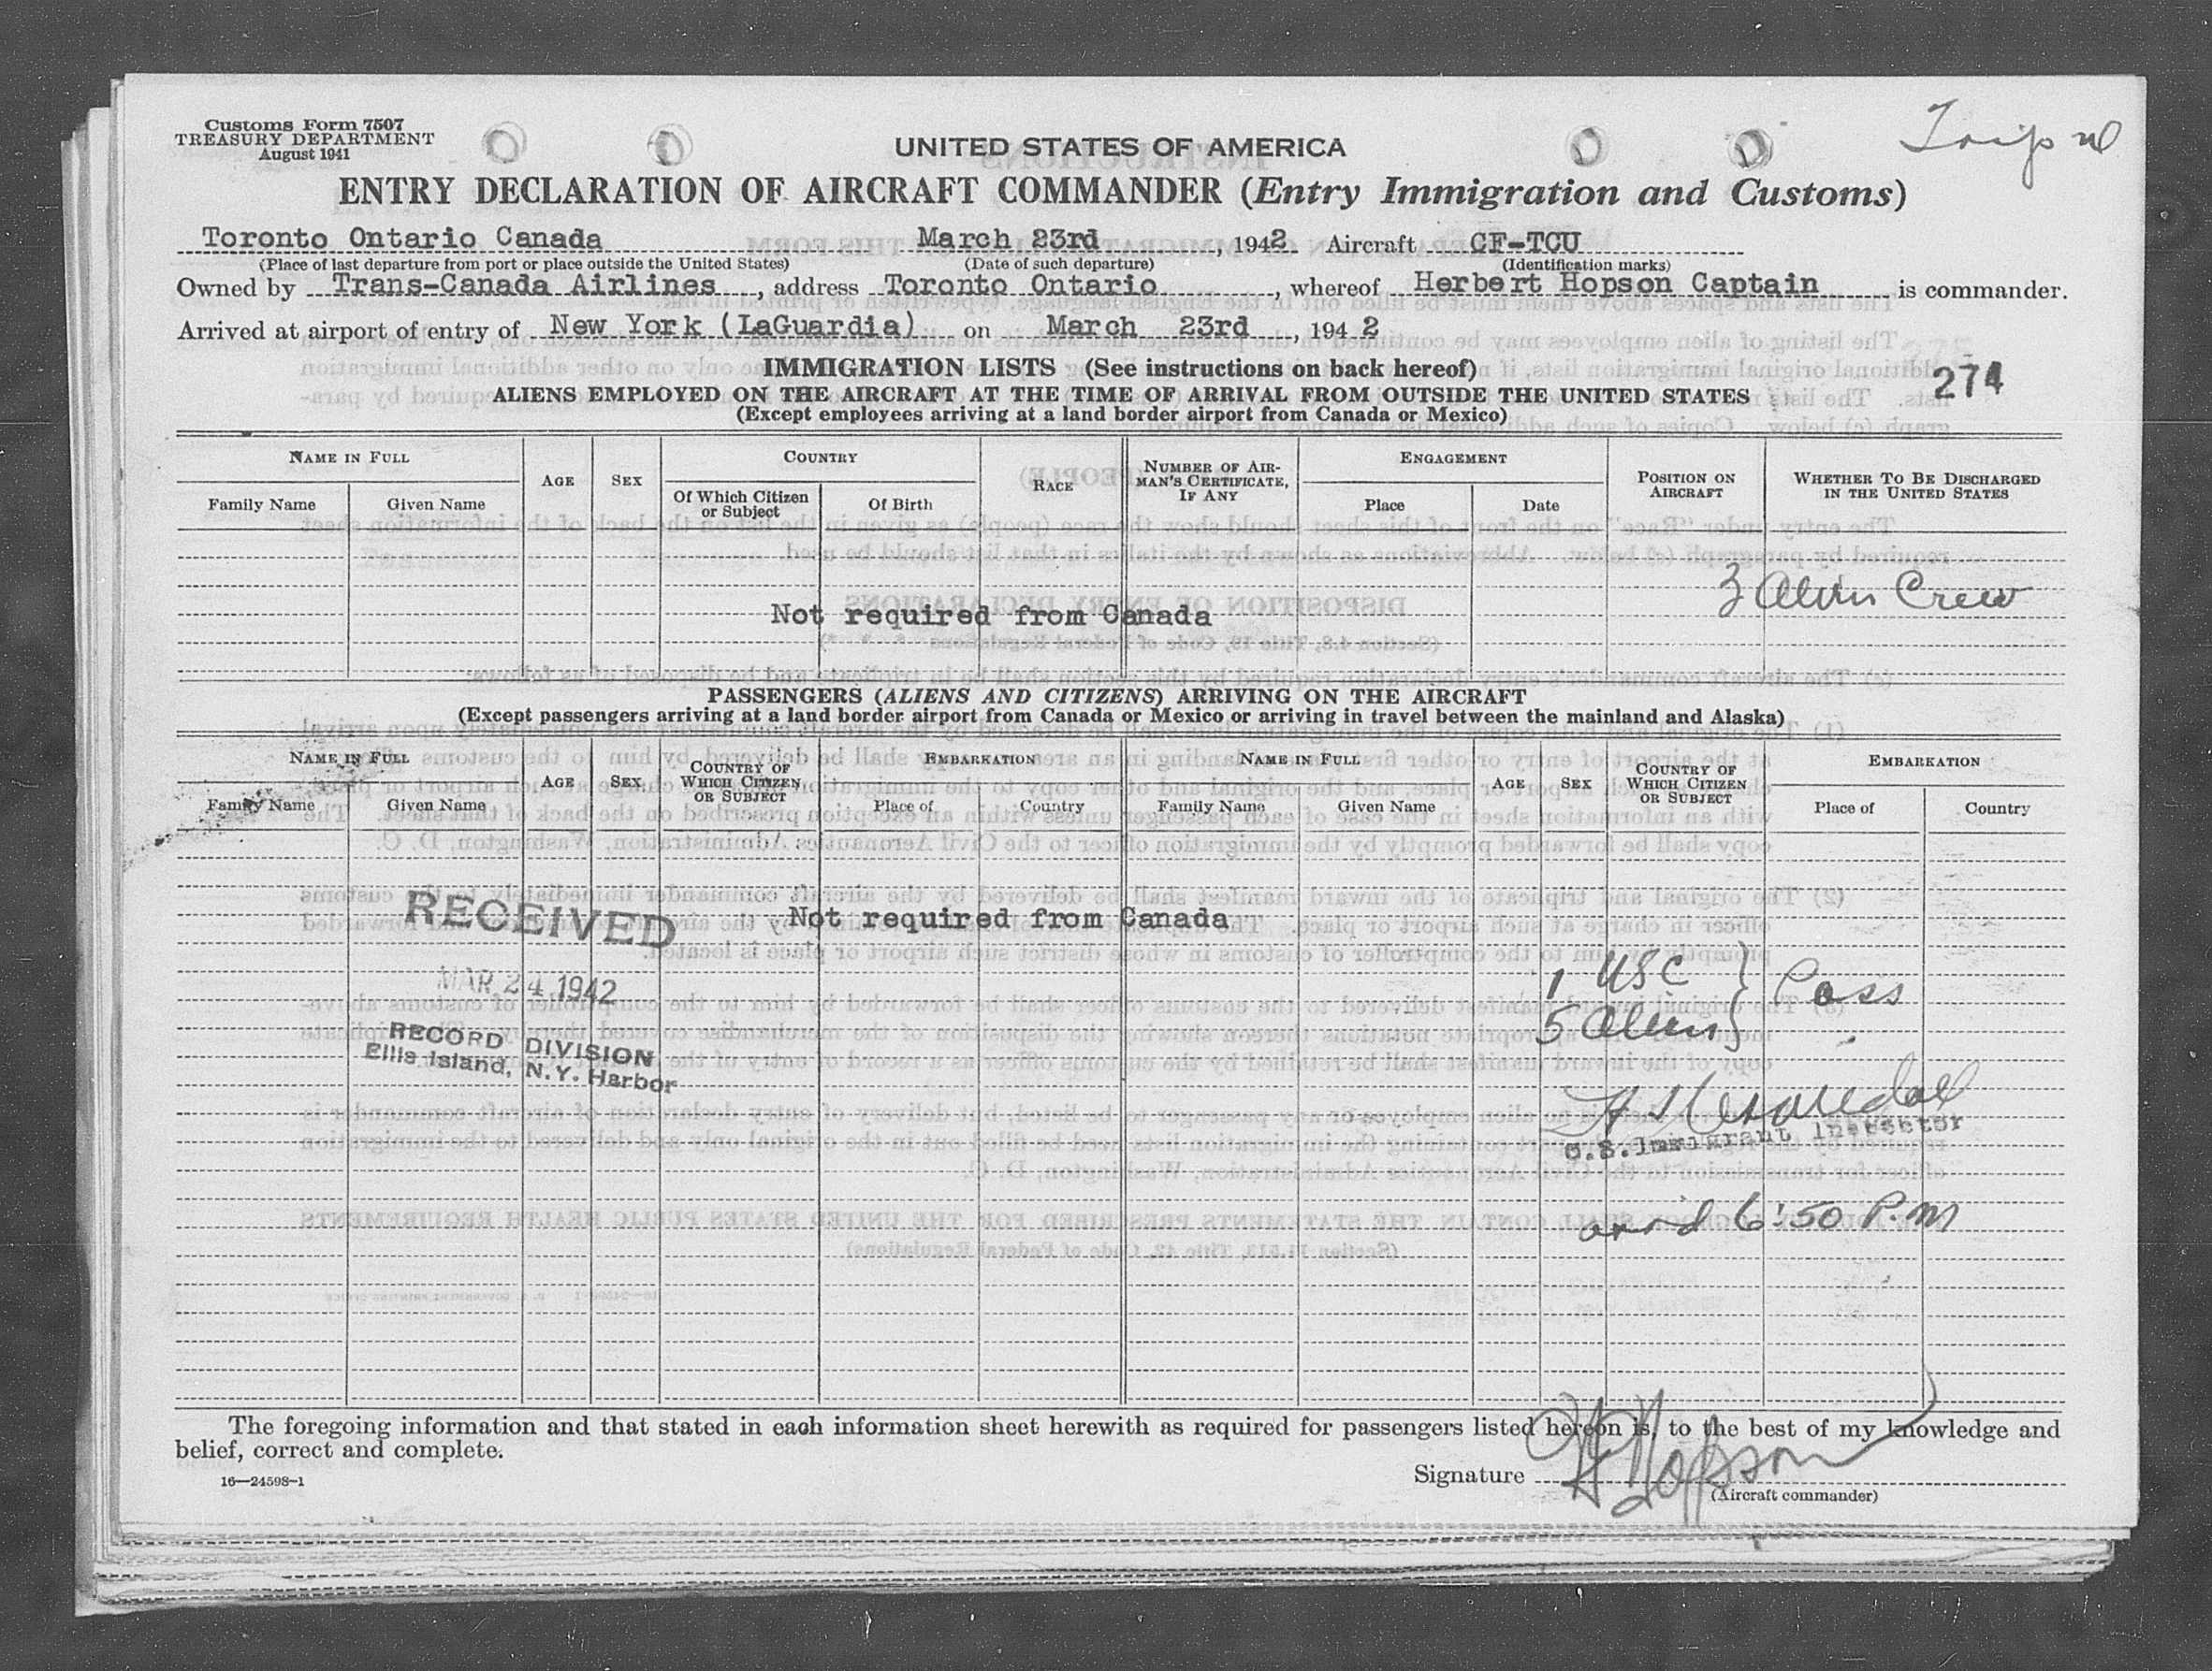 Customs Form 7507
TREASURY DEPARTMENT
August 1941
UNITED STATES OF AMERICA
ENTRY DECLARATION OF AIRCRAFT COMMANDER (Entry Immigration and Customs)
Toronto Ontario Canada March 23rd, 1942 Aircraft CF-TCU
(Place of last departure from port or place outside the United States) (Date of such departure) (Identification marks)
Owned by Trans-Canada Airlines, address Toronto Ontario, whereof Herbert Hopson Captain is commander.
Arrived at airport of entry of New York (LaGuardia) on March 23rd, 1942
IMMIGRATION LISTS (See instructions on back hereof)
274
ALIENS EMPLOYED ON THE AIRCRAFT AT THE TIME OF ARRIVAL FROM OUTSIDE THE UNITED STATES
(Except employees arriving at a land border airport from Canada or Mexico)
NAME IN FULL AGE SEX COUNTRY RACE NUMBER OF AIRMAN'S CERTIFICATE, IF ANY ENGAGEMENT POSITION ON AIRCRAFT WHETHER TO BE DISCHARGED IN THE UNITED STATES
Family Name Given Name Of Which Citizen or Subject Of Birth Place Date
3 Alien Crew
Not required from Canada
PASSENGERS (ALIENS AND CITIZENS) ARRIVING ON THE AIRCRAFT
(Except passengers arriving at a land border airport from Canada or Mexico or arriving in travel between the mainland and Alaska)
NAME IN FULL AGE SEX COUNTRY OF WHICH CITIZEN OR SUBJECT EMBARKATION NAME IN FULL AGE SEX COUNTRY OF WHICH CITIZEN OR SUBJECT EMBARKATION
Family Name Given Name Place of Country Family Name Given Name Place of Country
RECEIVED
Not required from Canada
MAR 24 1942
1 USC
5 Alien } Pass
RECORD DIVISION
Ellis Island, N.Y. Harbor
U.S. Immigrant Inspector
arrd 6:50 P.M
The foregoing information and that stated in each information sheet herewith as required for passengers listed hereon is, to the best of my knowledge and
belief, correct and complete.
16—24598-1
Signature H Hopson
(Aircraft commander)